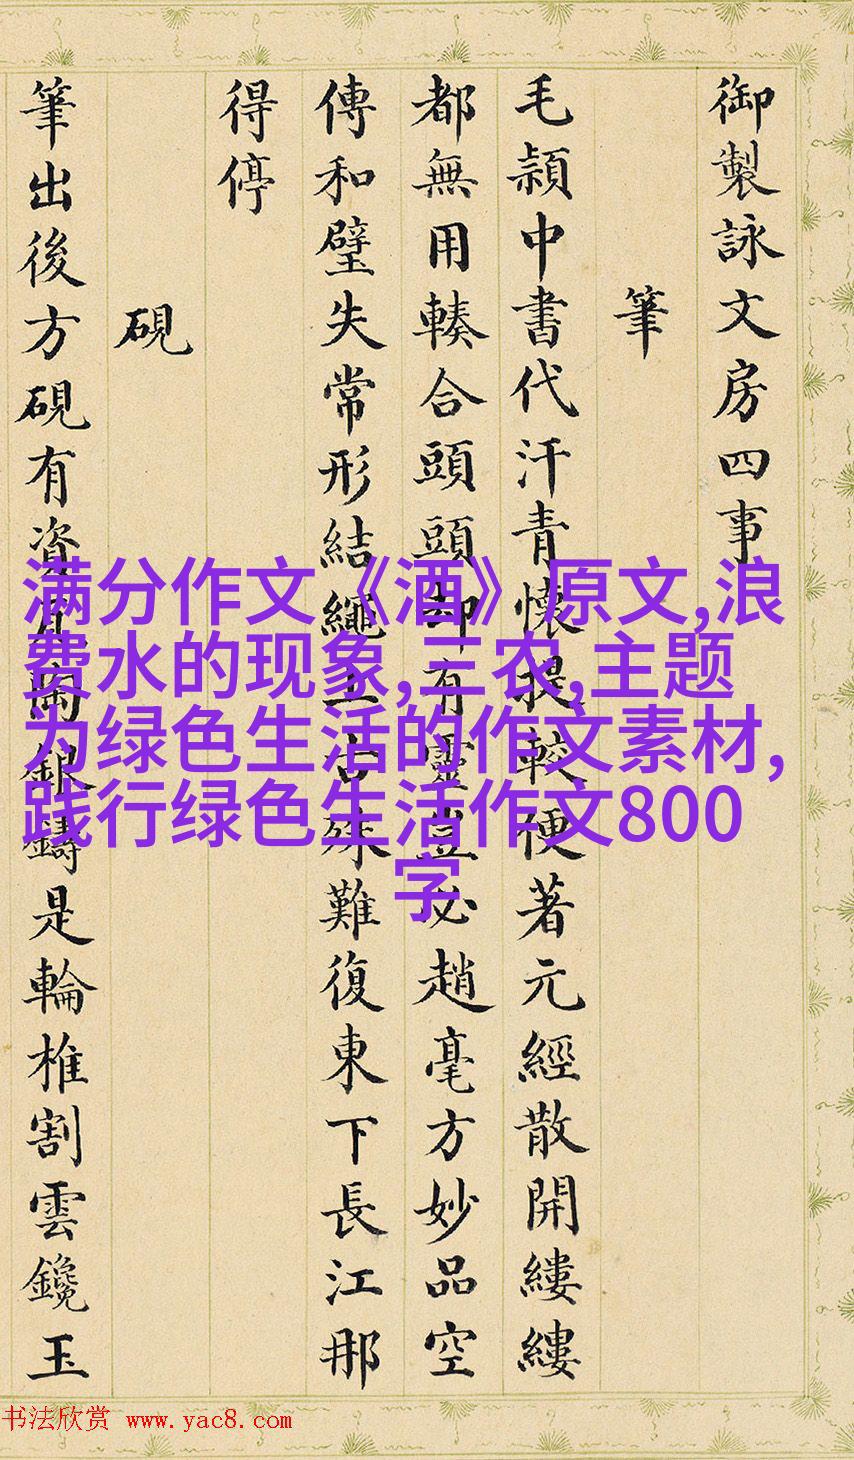 御製詠文房四事
筆
毛穎中書代汗青懷提較便著元經散開縷縷
都無用輳合頭頭却有靈豈必趙毫方妙品空
傳和璧失常形結繩上古殊難復東下長江那
得停
硯
筆出後方硯有資瓦陶銀鑄是輪椎割雲鑱玉
满分作文《酒》原文,浪
费水的现象,三农,主题
为绿色生活的作文素材,
践行绿色生活作文800
字
书法欣赏 www.yac8.com